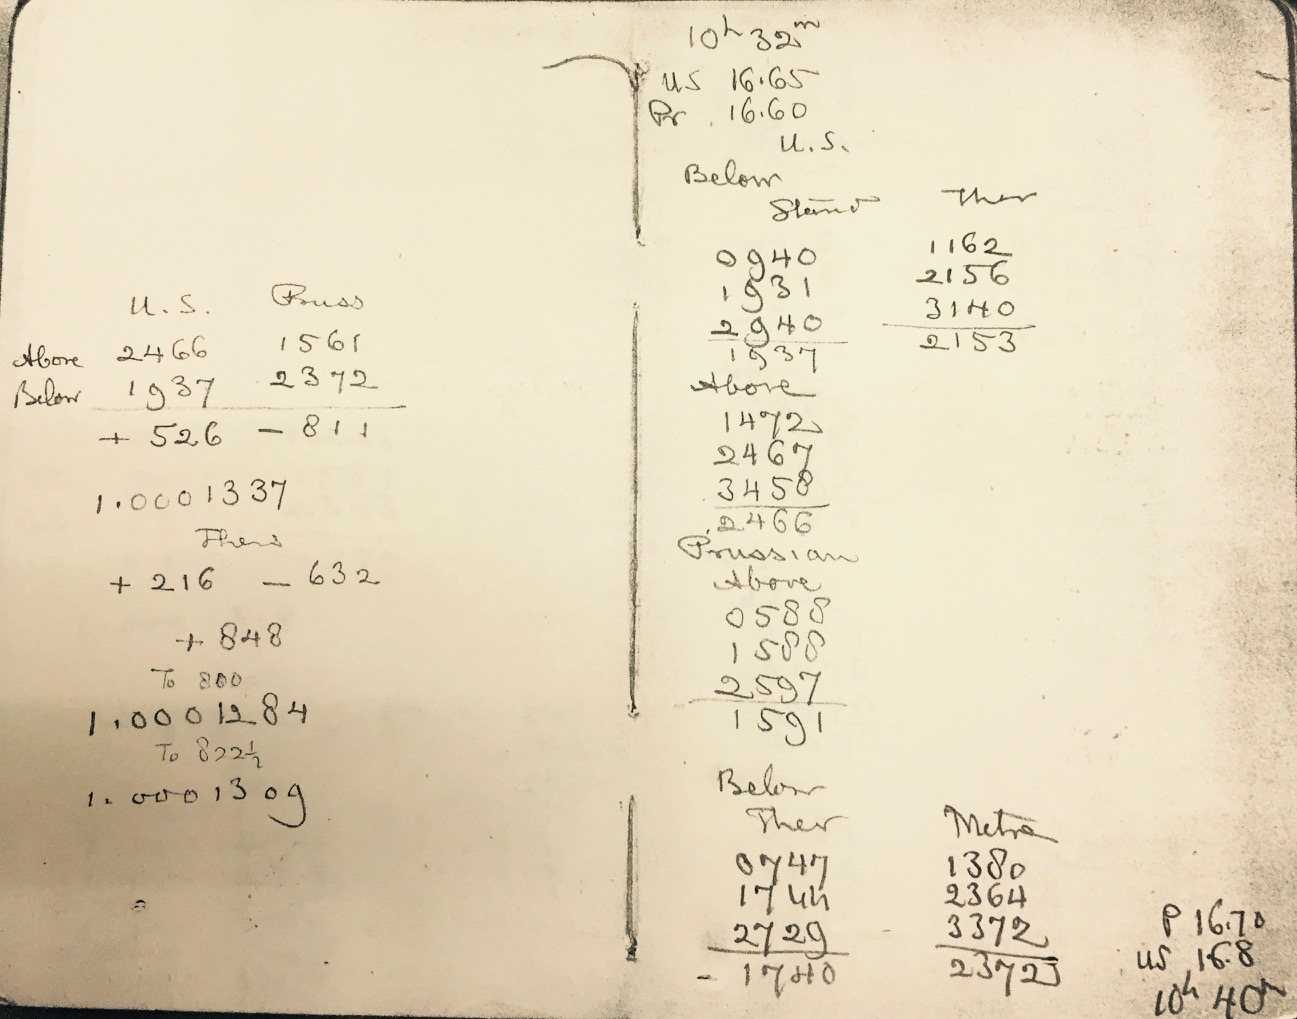 U.S. Pruss
Above 2466 1561
Below 1937 2372
+ 526 - 811
1.0001337
Thers
+ 216 - 632
+ 848
To 800
1.0001284
To 822½
1.0001309
10h 32m
US 16.65
Pr. 16.60
U.S.
Below
Stand Ther
0940 1162
1931 2156
2940 3140
1937 2153
Above
1472
2467
3458
2466
Prussian
Above
0588
1588
2597
1591
Below
Ther Metre
0747 1380
1744 2364
2729 3372
- 1740 2372
P 16.70
US 16.8
10h 40m